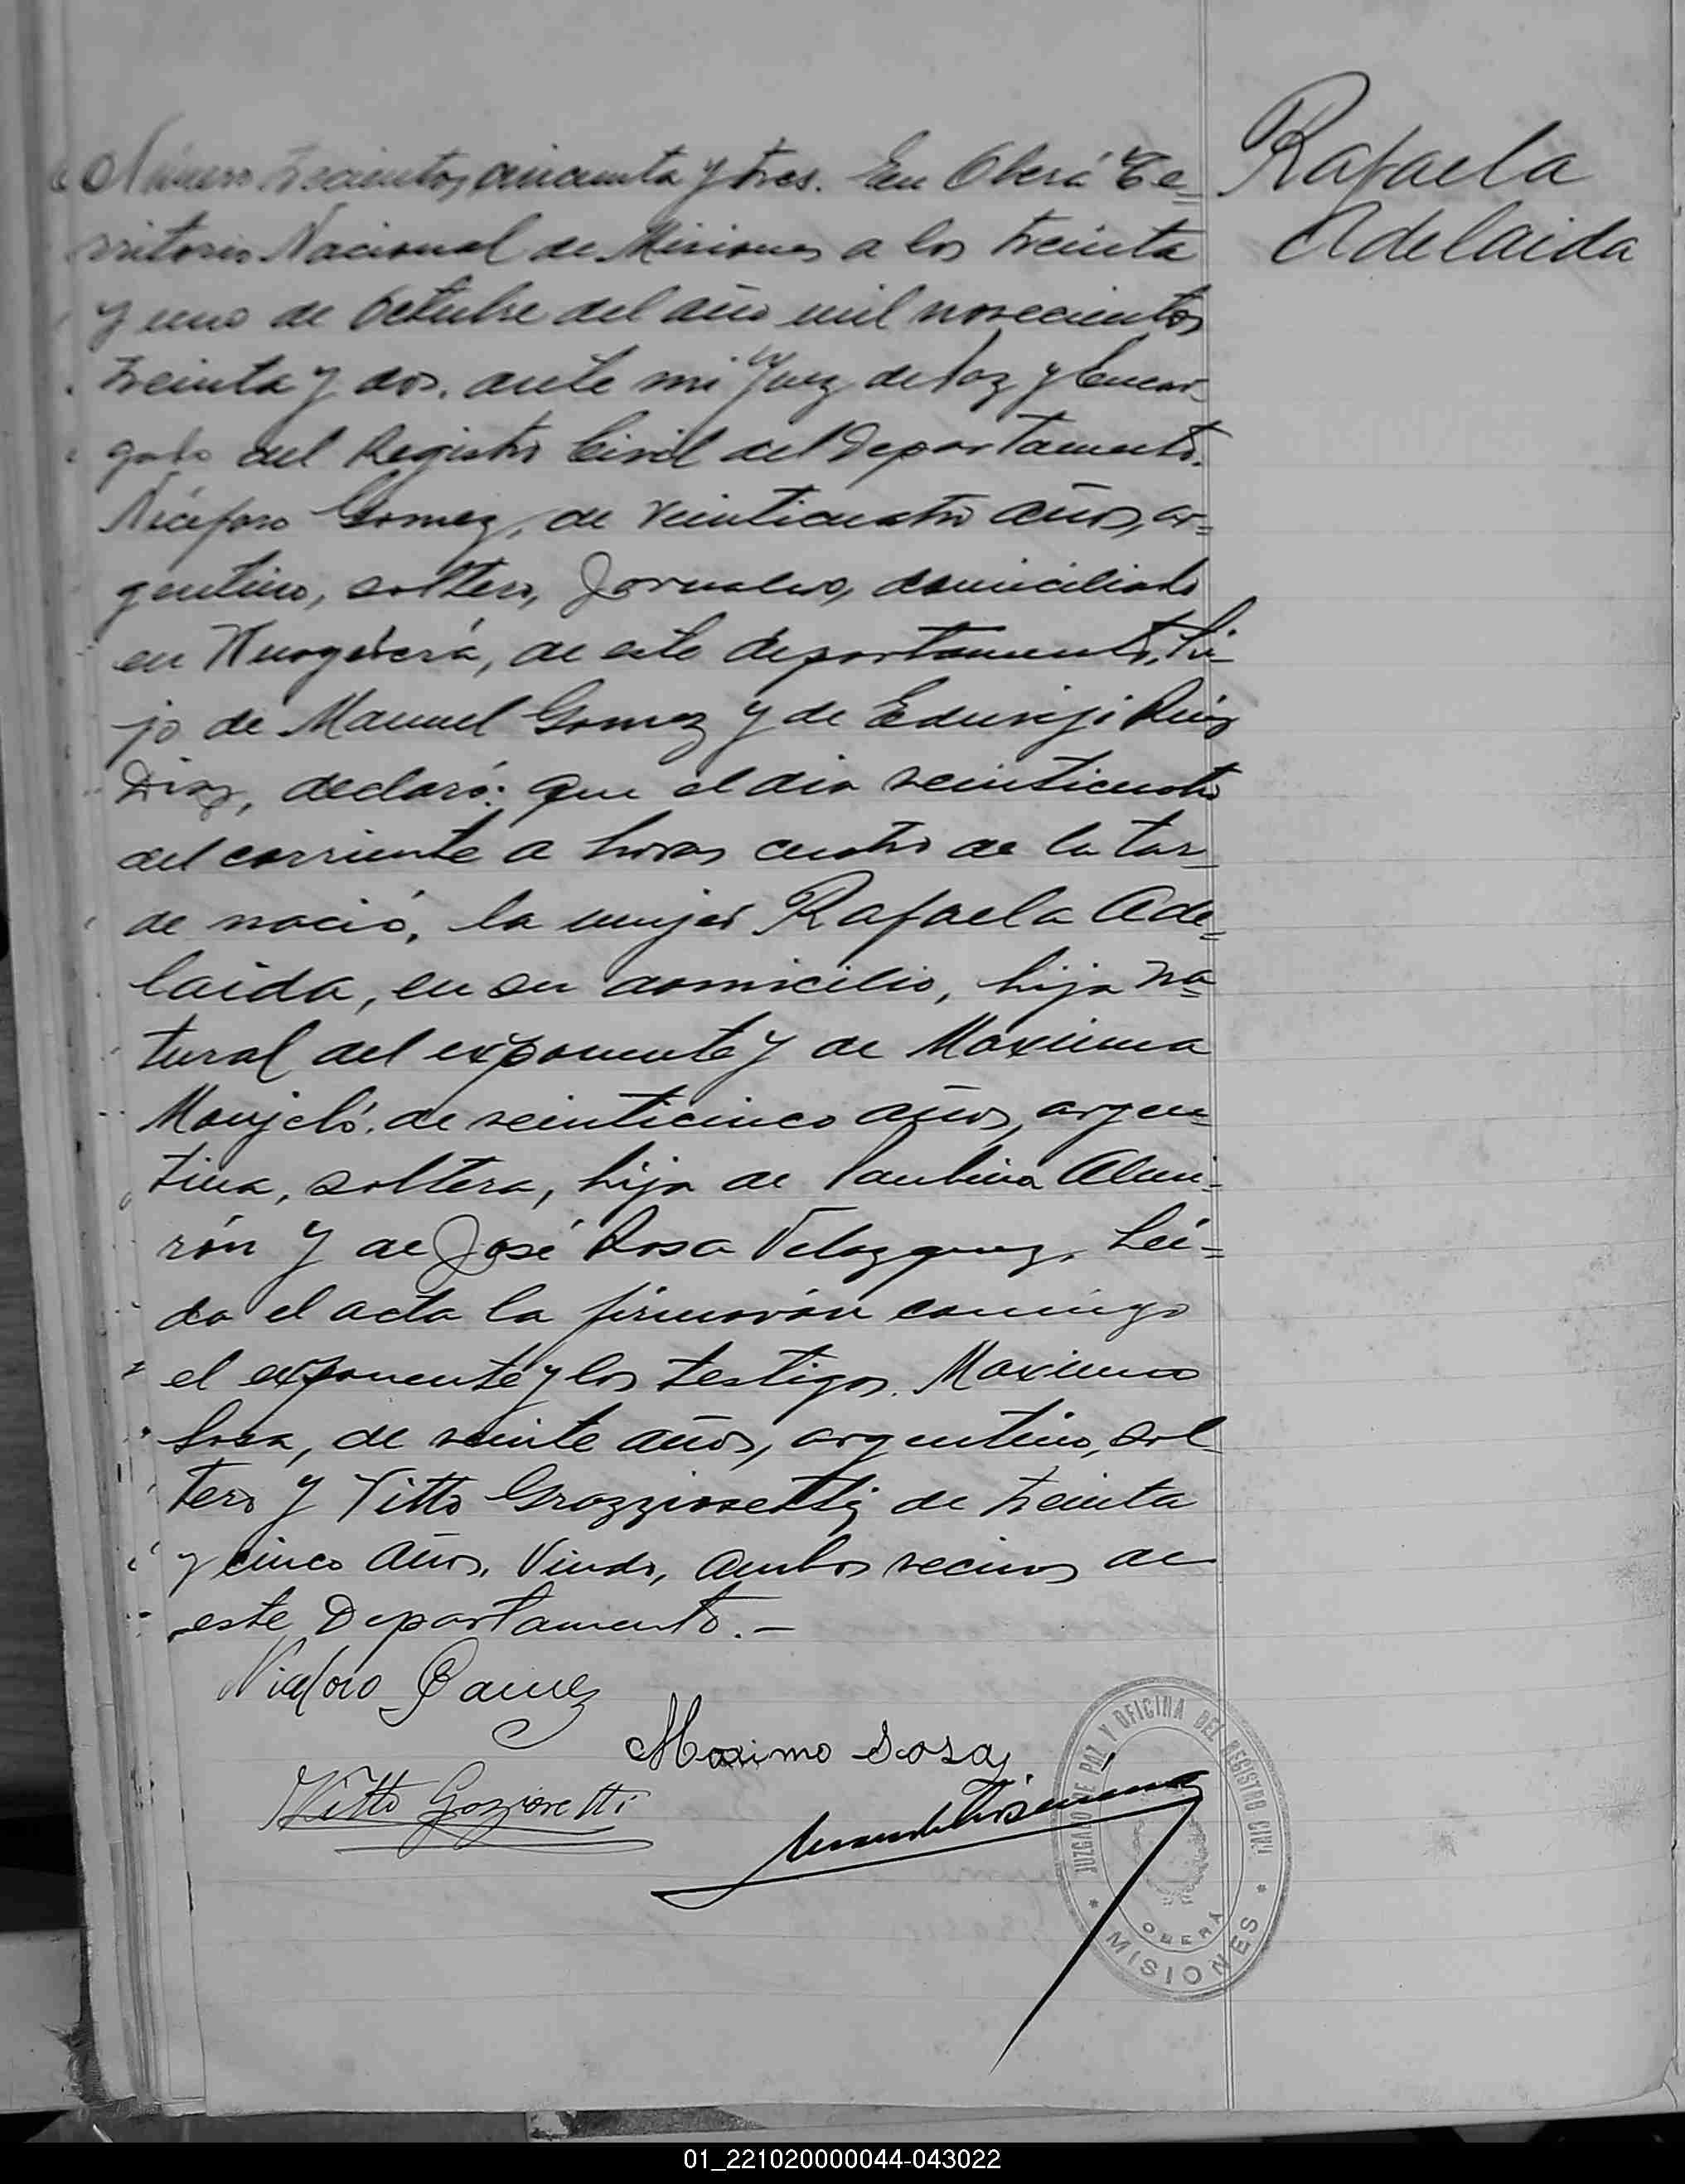 Número trescientos cincuenta y tres. En Oberá Te=
rritorio Nacional de Misiones a los treinta
y uno de Octubre del año mil novecientos
treinta y dos. ante mi Juez de Paz y Encar-
gado del Registro Civil del Departamento.
Nicéforo Gomez, de veinticuatro años, ar=
gentino, soltero, Jornalero, domiciliado
en de este departamento, hi-
jo de Manuel Gomez y de Eduviji Ruiz
Diaz, declaró: que el dia veinticuatro
del corriente a horas cuatro de la tar-
de nació, la mujer Rafaela Ade=
laida, en su domicilio, hija na=
tural del exponente y de Maxima
de veinticinco años, argen=
tina, soltera, hija de Paulina Almi=
rón y de José Rosa Velazquez. Leí=
da el acta la firmaron conmigo
el exponente y los testigos. Maximo
Sosa, de veinte años, argentino, sol-
tero y Vitto Grazziosetti de treinta
y cinco años. Viudo, ambos vecinos de
este Departamento.-
Rafaela
Adelaida
Niceforo Gomez
Maximo Sosa
Vitto
JUZGADO DE PAZ Y OFICINA DEL REGISTRO CIVIL
OBERÁ
* MISIONES *
01_221020000044-043022